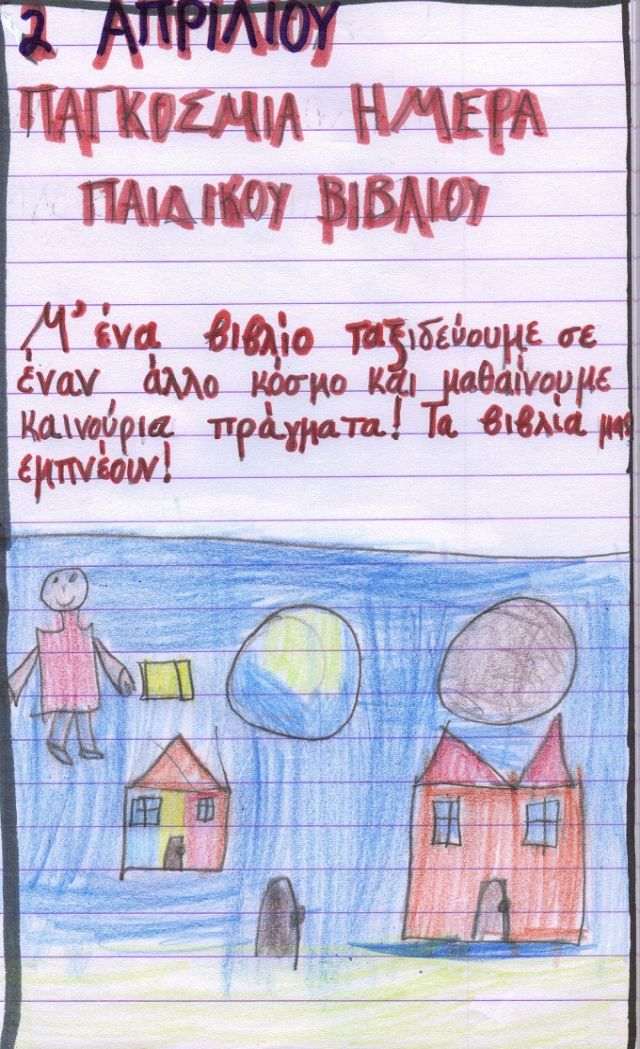 2 ΑΠΡΙΛΙΟΥ
ΠΑΓΚΟΣΜΙΑ ΗΜΕΡΑ
ΠΑΙΔΙΚΟΥ ΒΙΒΛΙΟΥ
Μ' ένα βιβλίο ταξιδεύουμε σε
έναν άλλο κόσμο και μαθαίνουμε
καινούρια πράγματα! Τα βιβλία μας
εμπνέουν!